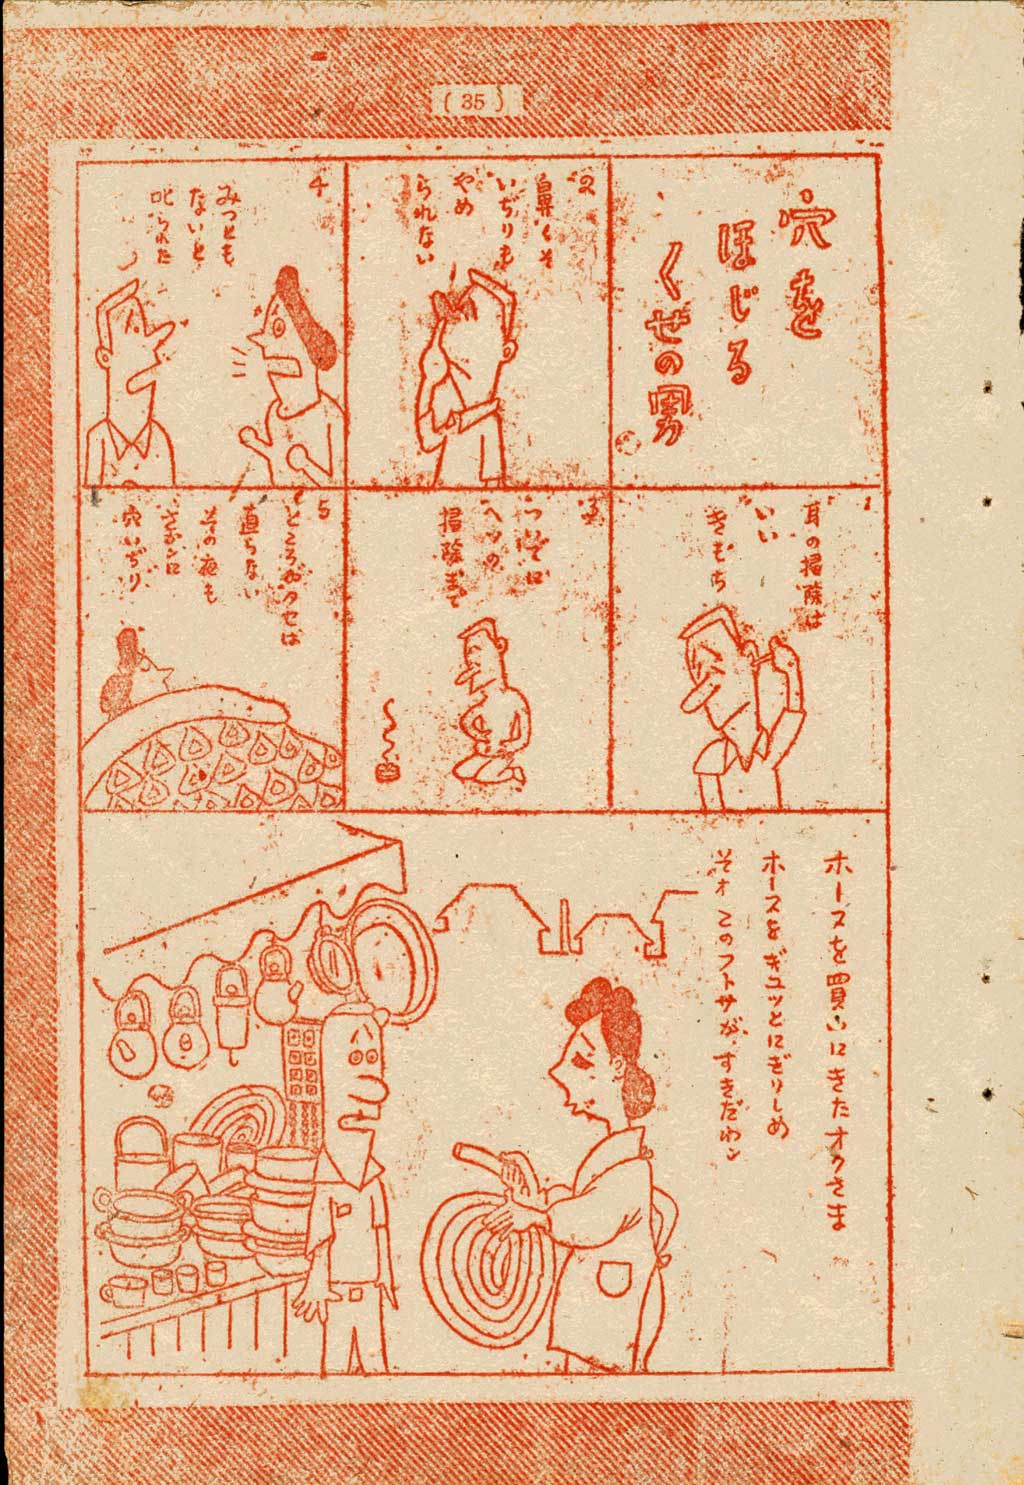 ( 35 )
穴を
ほじる
くせの男
1
耳の掃除は
いい
きもち
2
鼻くそ
いぢりも
やめ
られない
3
ついでに
ヘソの
掃除まで
4
みつとも
ないと
叱られた
5
ところがクセは
直らない
その夜も
さかんに
穴いぢり
ホースを買いにきたオクさま
ホースをギュッとにぎりしめ
そオ このフトサが、すきだわン